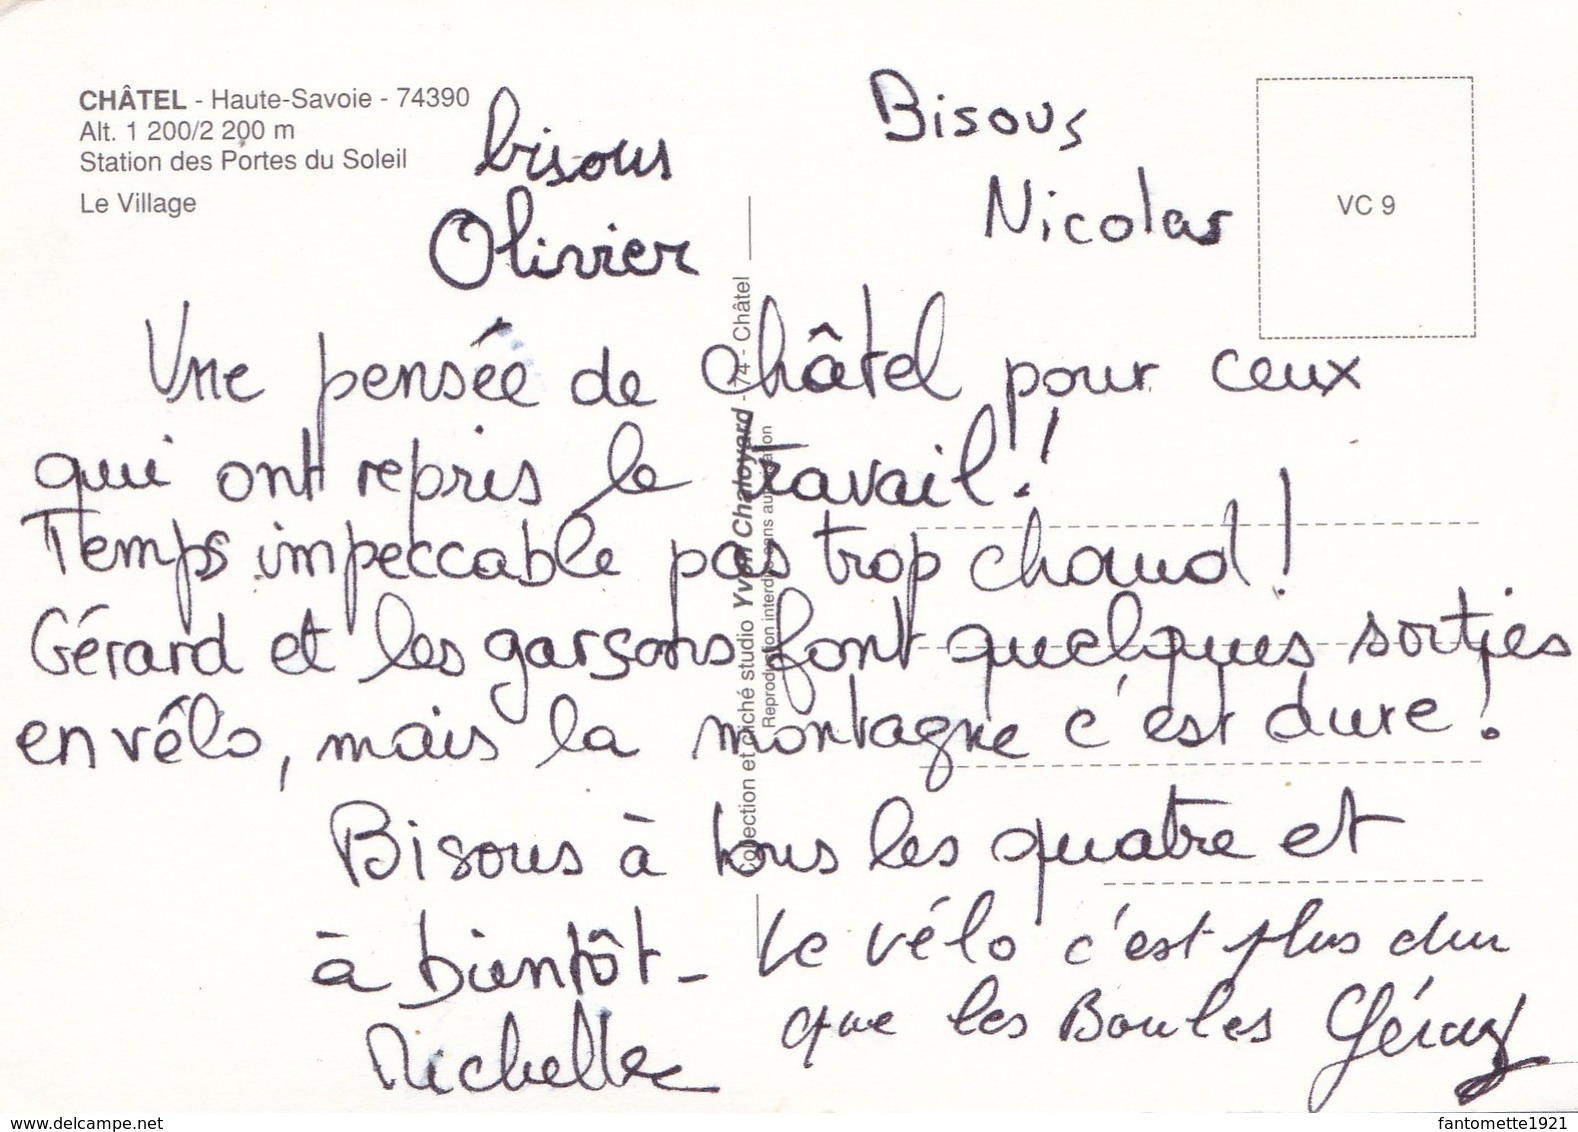 CHÂTEL - Haute-Savoie - 74390
Alt. 1 200/2 200 m
Station des Portes du Soleil
Le Village
bisous
Olivier
Bisous
Nicolas
VC 9
Une pensée de Châtel pour ceux
qui ont repris le travail!
Temps impeccable pas trop chaud!
Gérard et les garçons font quelques sorties
en vélo, mais la montagne c'est dure!
Bisous à tous les quatre et
à bientôt -
Michelle
Le vélo c'est plus dur
que les Boules Gérard
Collection et cliché studio Yvon Chaloyard - 74 - Châtel
Reproduction interdite sans autorisation
www.delcampe.net
fantomette1921